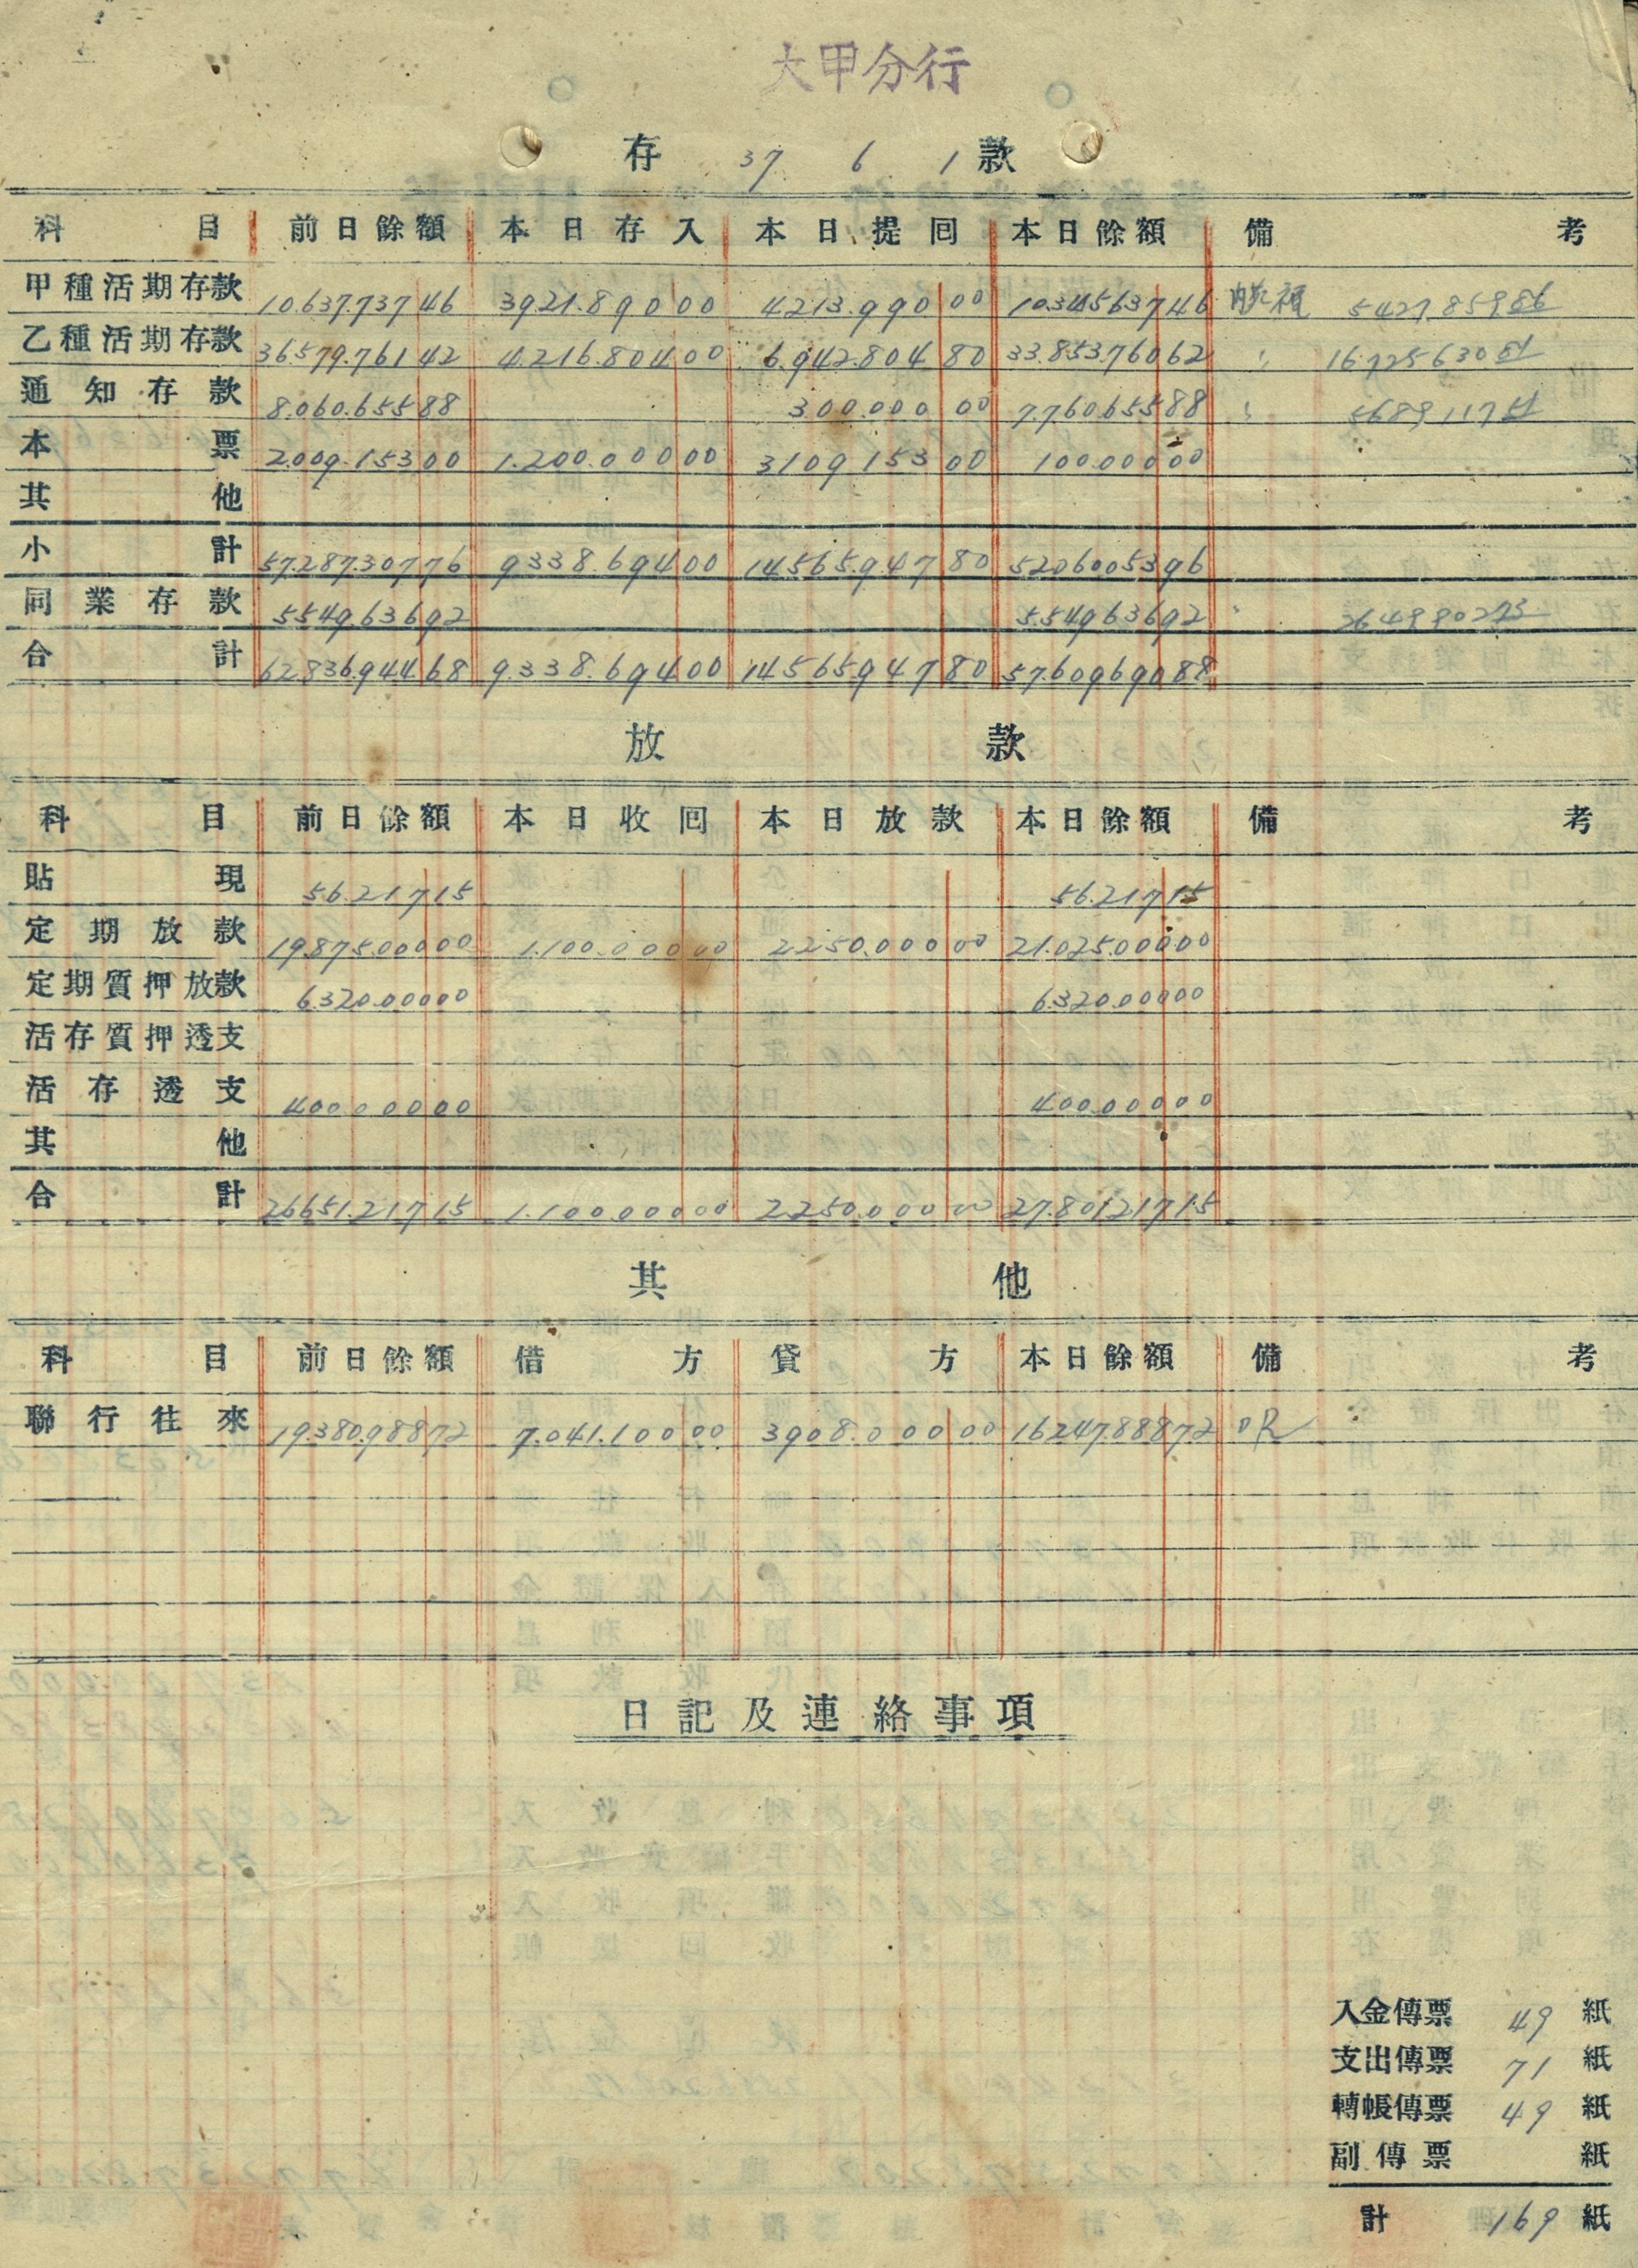 大甲分行
存 37 6 1 款
科目 前日餘額 本日存入 本日提囘 本日餘額 備考
甲種活期存款 10.637.737 46 3921.890 00 4213.990 00 10.345.637 46
乙種活期存款 36.579.761 42 4.216.804 00 6.942.804 80 33.853.760 62
通知存款 8.060.655 88 300.000 00 7.760.655 88
本票 2.009.153 00 1.200.000 00 3109153 00 100.000 00
其他
小計 57.287.307 76 9338.694 00 14.565.947 80 52.060.053 96
同業存款 5.549.636 92 5.549.636 92
合計 62.836.944 68 9.338.694 00 14.565.947 80 57.609.690 88
放款
科目 前日餘額 本日收囘 本日放款 本日餘額 備考
貼現 56.217 15 56.217 15
定期放款 19.875.000 00 1.100.000 00 2.250.000 00 21.025.000 00
定期質押放款 6.320.000 00 6.320.000 00
活存質押透支
活存透支 400.000 00 400.000 00
其他
合計 26.651.217 15 1.100.000 00 2.250.000 00 27.801.217 15
其他
科目 前日餘額 借方 貸方 本日餘額 備考
聯行往來 19.380.988 72 7.041.100 00 3908.000 00 16.247.888 72
日記及連絡事項
入金傳票 49 紙
支出傳票 71 紙
轉帳傳票 49 紙
副傳票 紙
計 169 紙